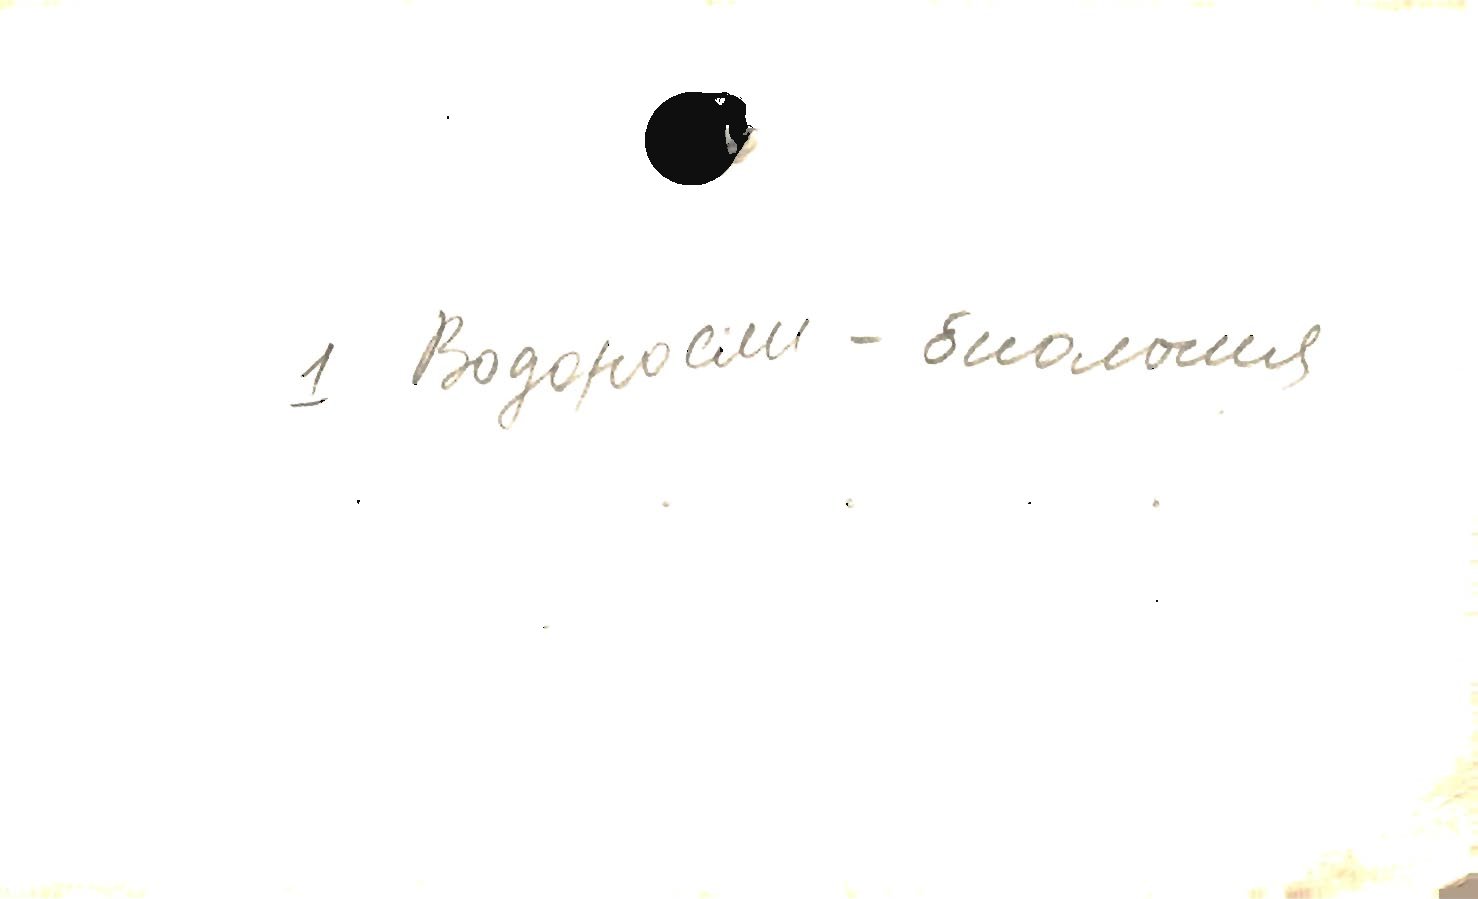 1 Водоросли - биология